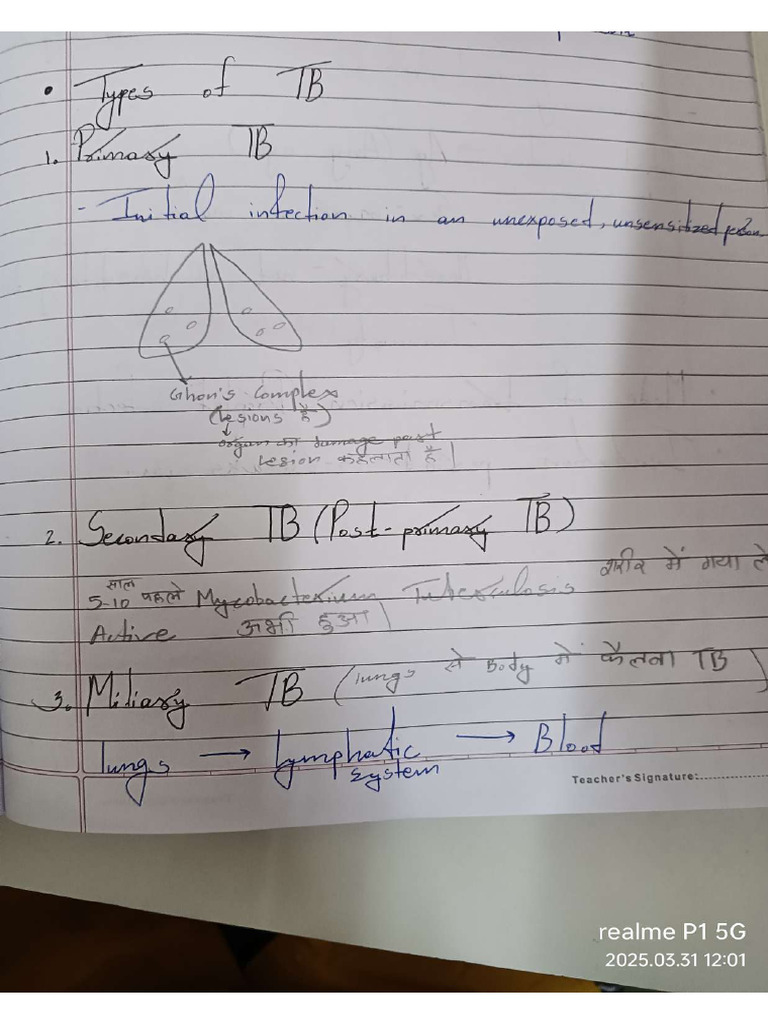 • Types of TB
1. Primary TB
- Initial infection in an unexposed, unsensitized person
Ghon's Complex
(Lesions है)
organ का damage part
Lesion कहलाता है|
2. Secondary TB (Post-primary TB)
5-10 साल पहले Mycobacterium Tuberculosis शरीर में गया
Active अभी हुआ|
3. Miliary TB (lungs से Body में फैलना TB)
lungs → Lymphatic system → Blood
Teacher's Signature:
realme P1 5G
2025.03.31 12:01